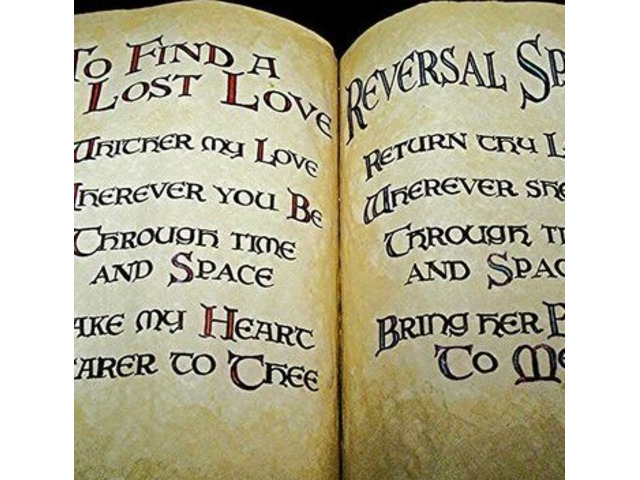 To Find a
Lost Love
Whither my Love
Wherever you Be
Through time
and Space
ake my Heart
arer to Thee
Reversal Sp
Return thy L
Wherever she
Through ti
and Spac
Bring her
To Me